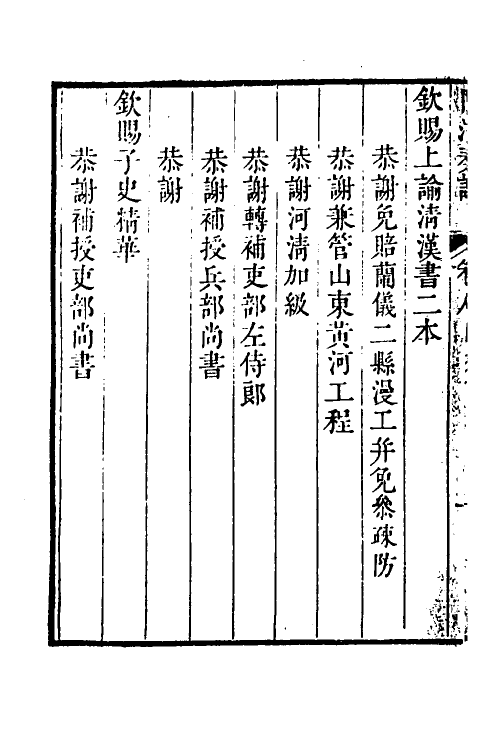 欽賜上諭淸漢書二本
恭謝免賠蘭儀二縣漫工幷免叅疎防
恭謝兼管山東黃河工程
恭謝河淸加級
恭謝轉補吏部左侍郎
恭謝補授兵部尚書
恭謝
欽賜子史精華
恭謝補授吏部尚書